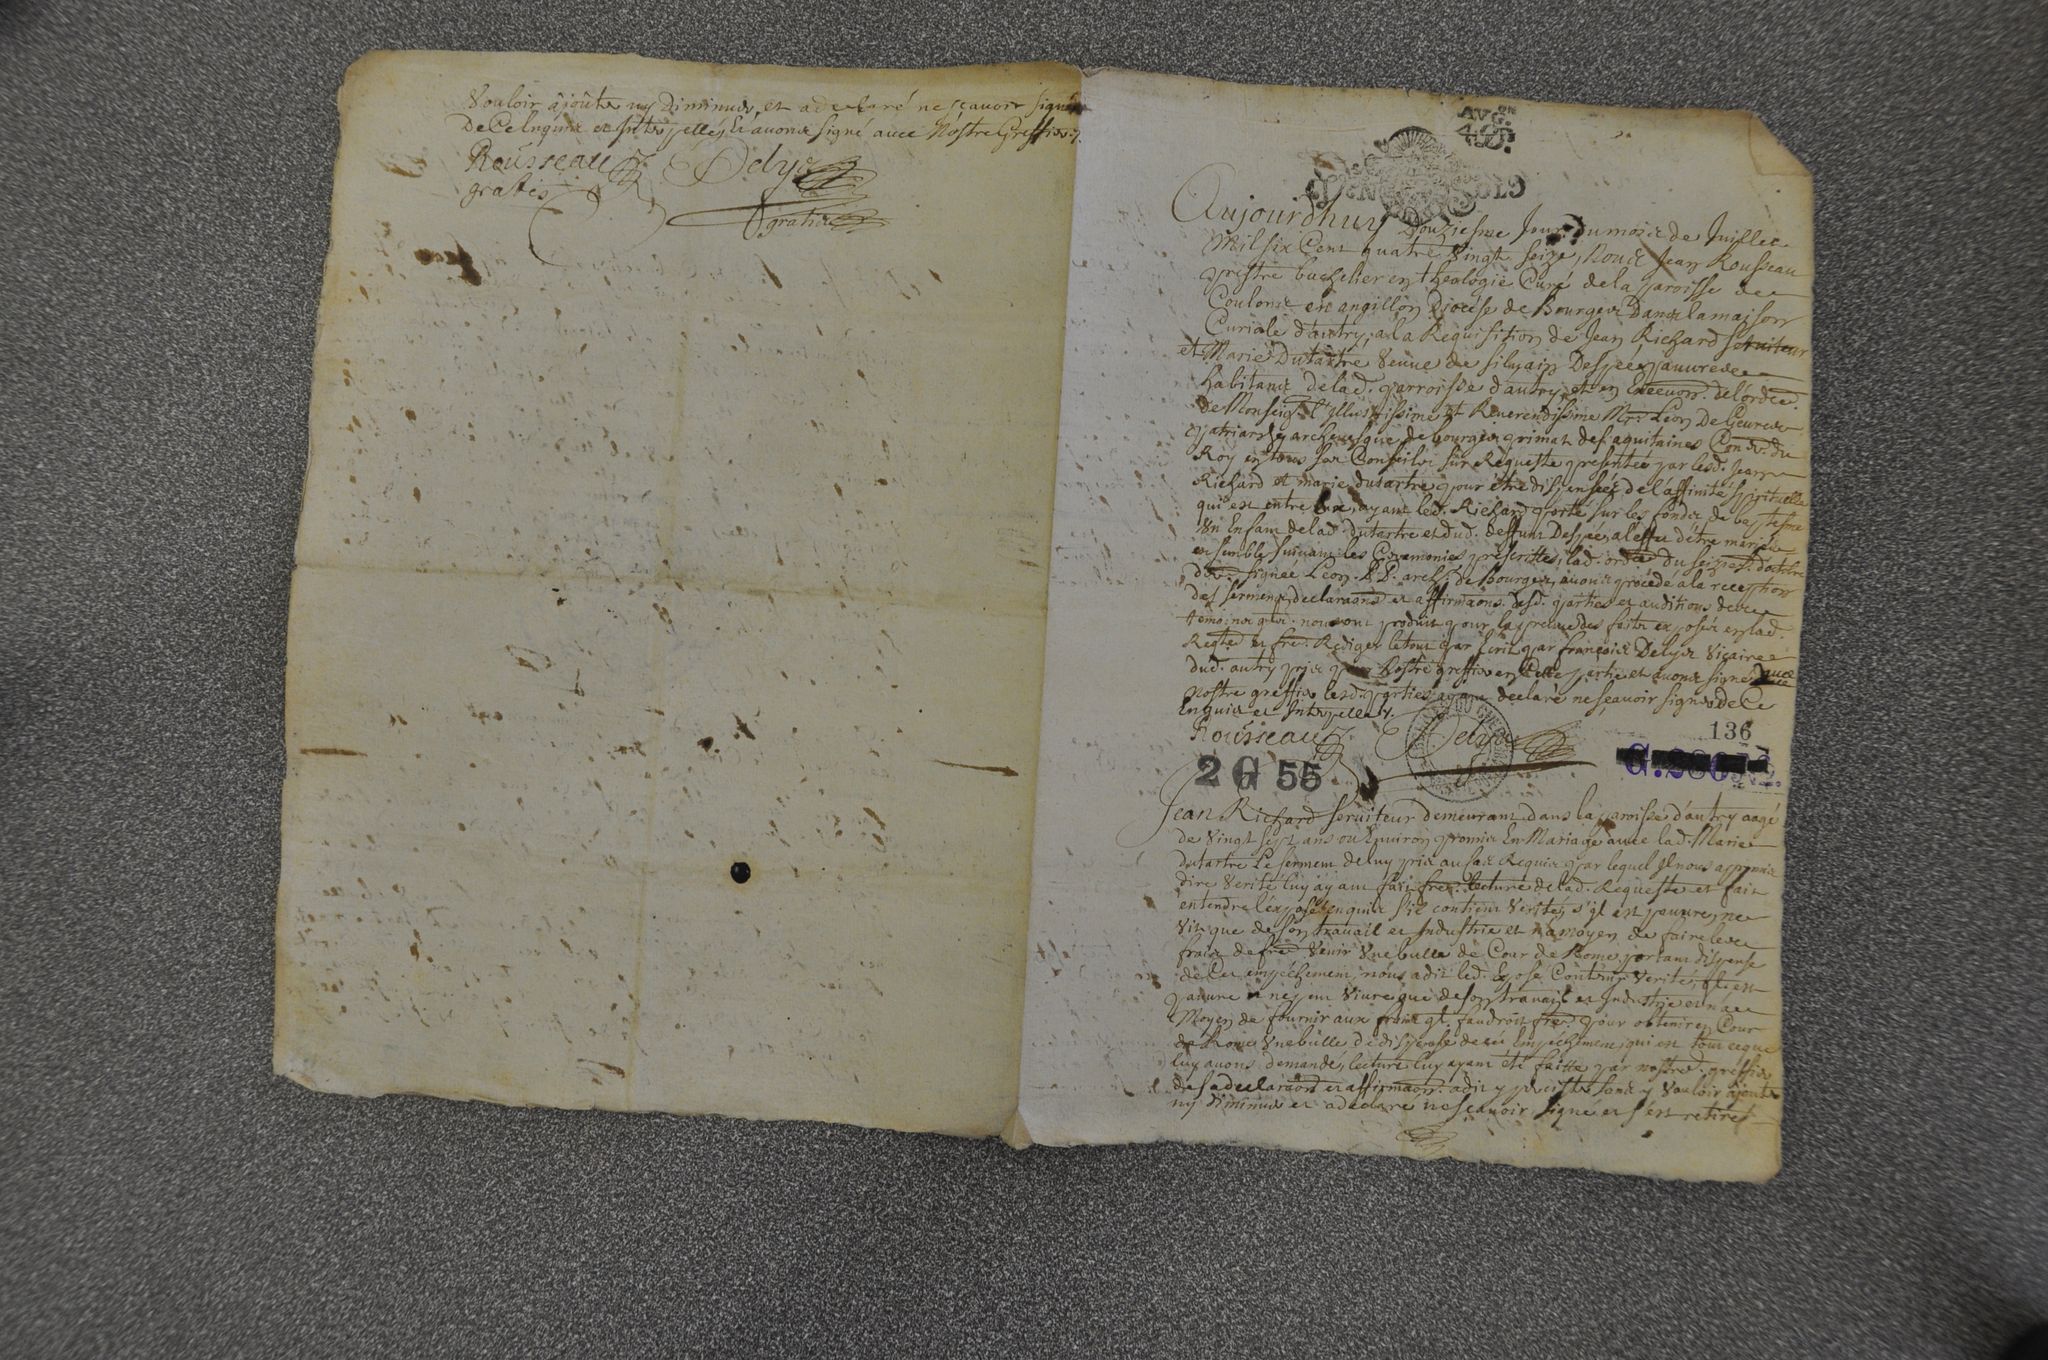 vouloir ajouter ny diminuer et a declaré ne sçavoir signer
De ce Enquis et Interpellé, Et avons signé avec Nostre Greffier
Rousseau Delys
gratis gratis
AVG.ON
4.D.
Aujourdhuy Douziesme Jour du mois de Juillet
Mil six Cent quatre Vingt seize, Nous Jean Rousseau
prestre bachelier en theologie Curé de la paroisse de
Coulons en angillon Diocese de Bourges Dans la maison
Curiale d'autry, a la Requisition de Jean Richard serviteur
et Marie Dutartre veuve de silvain Despée, pauvres
habitans de lad. parroisse d'autry, et en Execuon. de l'ordce.
de Monseigr. l'Illustrissime et Reverendissime Mre. Léon de
patriarche archevesque de bourges primat des aquitaines Con.er du
Roy en tous ses Conseils sur Requeste presentée par lesd. Jean
Richard et marie dutartre pour être dispensés de l'affinité spirituelle
qui est entre Eux, ayant led. Richard porté sur les fonds de baptesme
Un Enfant de lad. dutartre et dud. deffunt Despée, a l'effet d'être mariés
ensemble suivant les Ceremonies prescrittes, lad. ordce du d'octobre
signée Léon P.P. arch. de Bourges, avons procédé a la reception
des serments, declaraons et affirmaons desd. parties et auditions de
temoins qui nous ont produit pour la preuve des faits exposés en lad.
Reqte et fre. Rediger le tout par Ecrit par françois Delys Vicaire
dud. autry pris pour Nostre greffier en Cette partie et avons signé avec
nostre greffier lesd. parties ayant declaré ne sçavoir signer de Ce
Enquis et Interpellés.
Rousseau Delys
136
2 G 55
Jean Richard serviteur demeurant dans la paroisse d'autry aagé
de Vingt sept ans ou Environ promis En Mariage avec lad. Marie
dutartre Le serment de luy pris au Cas Requis par lequel Il nous a promis
dire Verité luy ayant fait fre. lecture de lad. Requeste et fait
entendre l'exposé, enquis s'il contient Verité, s'il est pauvre, ne
Vit que de son travail et Industrie et n'a moyen de faire les
frais de fre. Venir Une bulle de Cour de Rome portant dispense
dud. empêchement, nous a dit led. Exposé Contenir Verité, Il est
pauvre et ne peut Vivre que de son travail et Industrie et n'a
Moyen de fournir aux frais qt. faudroit fre. pour obtenir en Cour
de Rome Une bulle de dispense dud. Empechement, qui est tout ce que
luy avons demandé, lecture luy ayant été faitte par nostred. greffier
de sa declaraon et affirmaon. a dit y persister sans y Vouloir ajouter
ny diminuer et a declaré ne sçavoir signer et s'est retiré